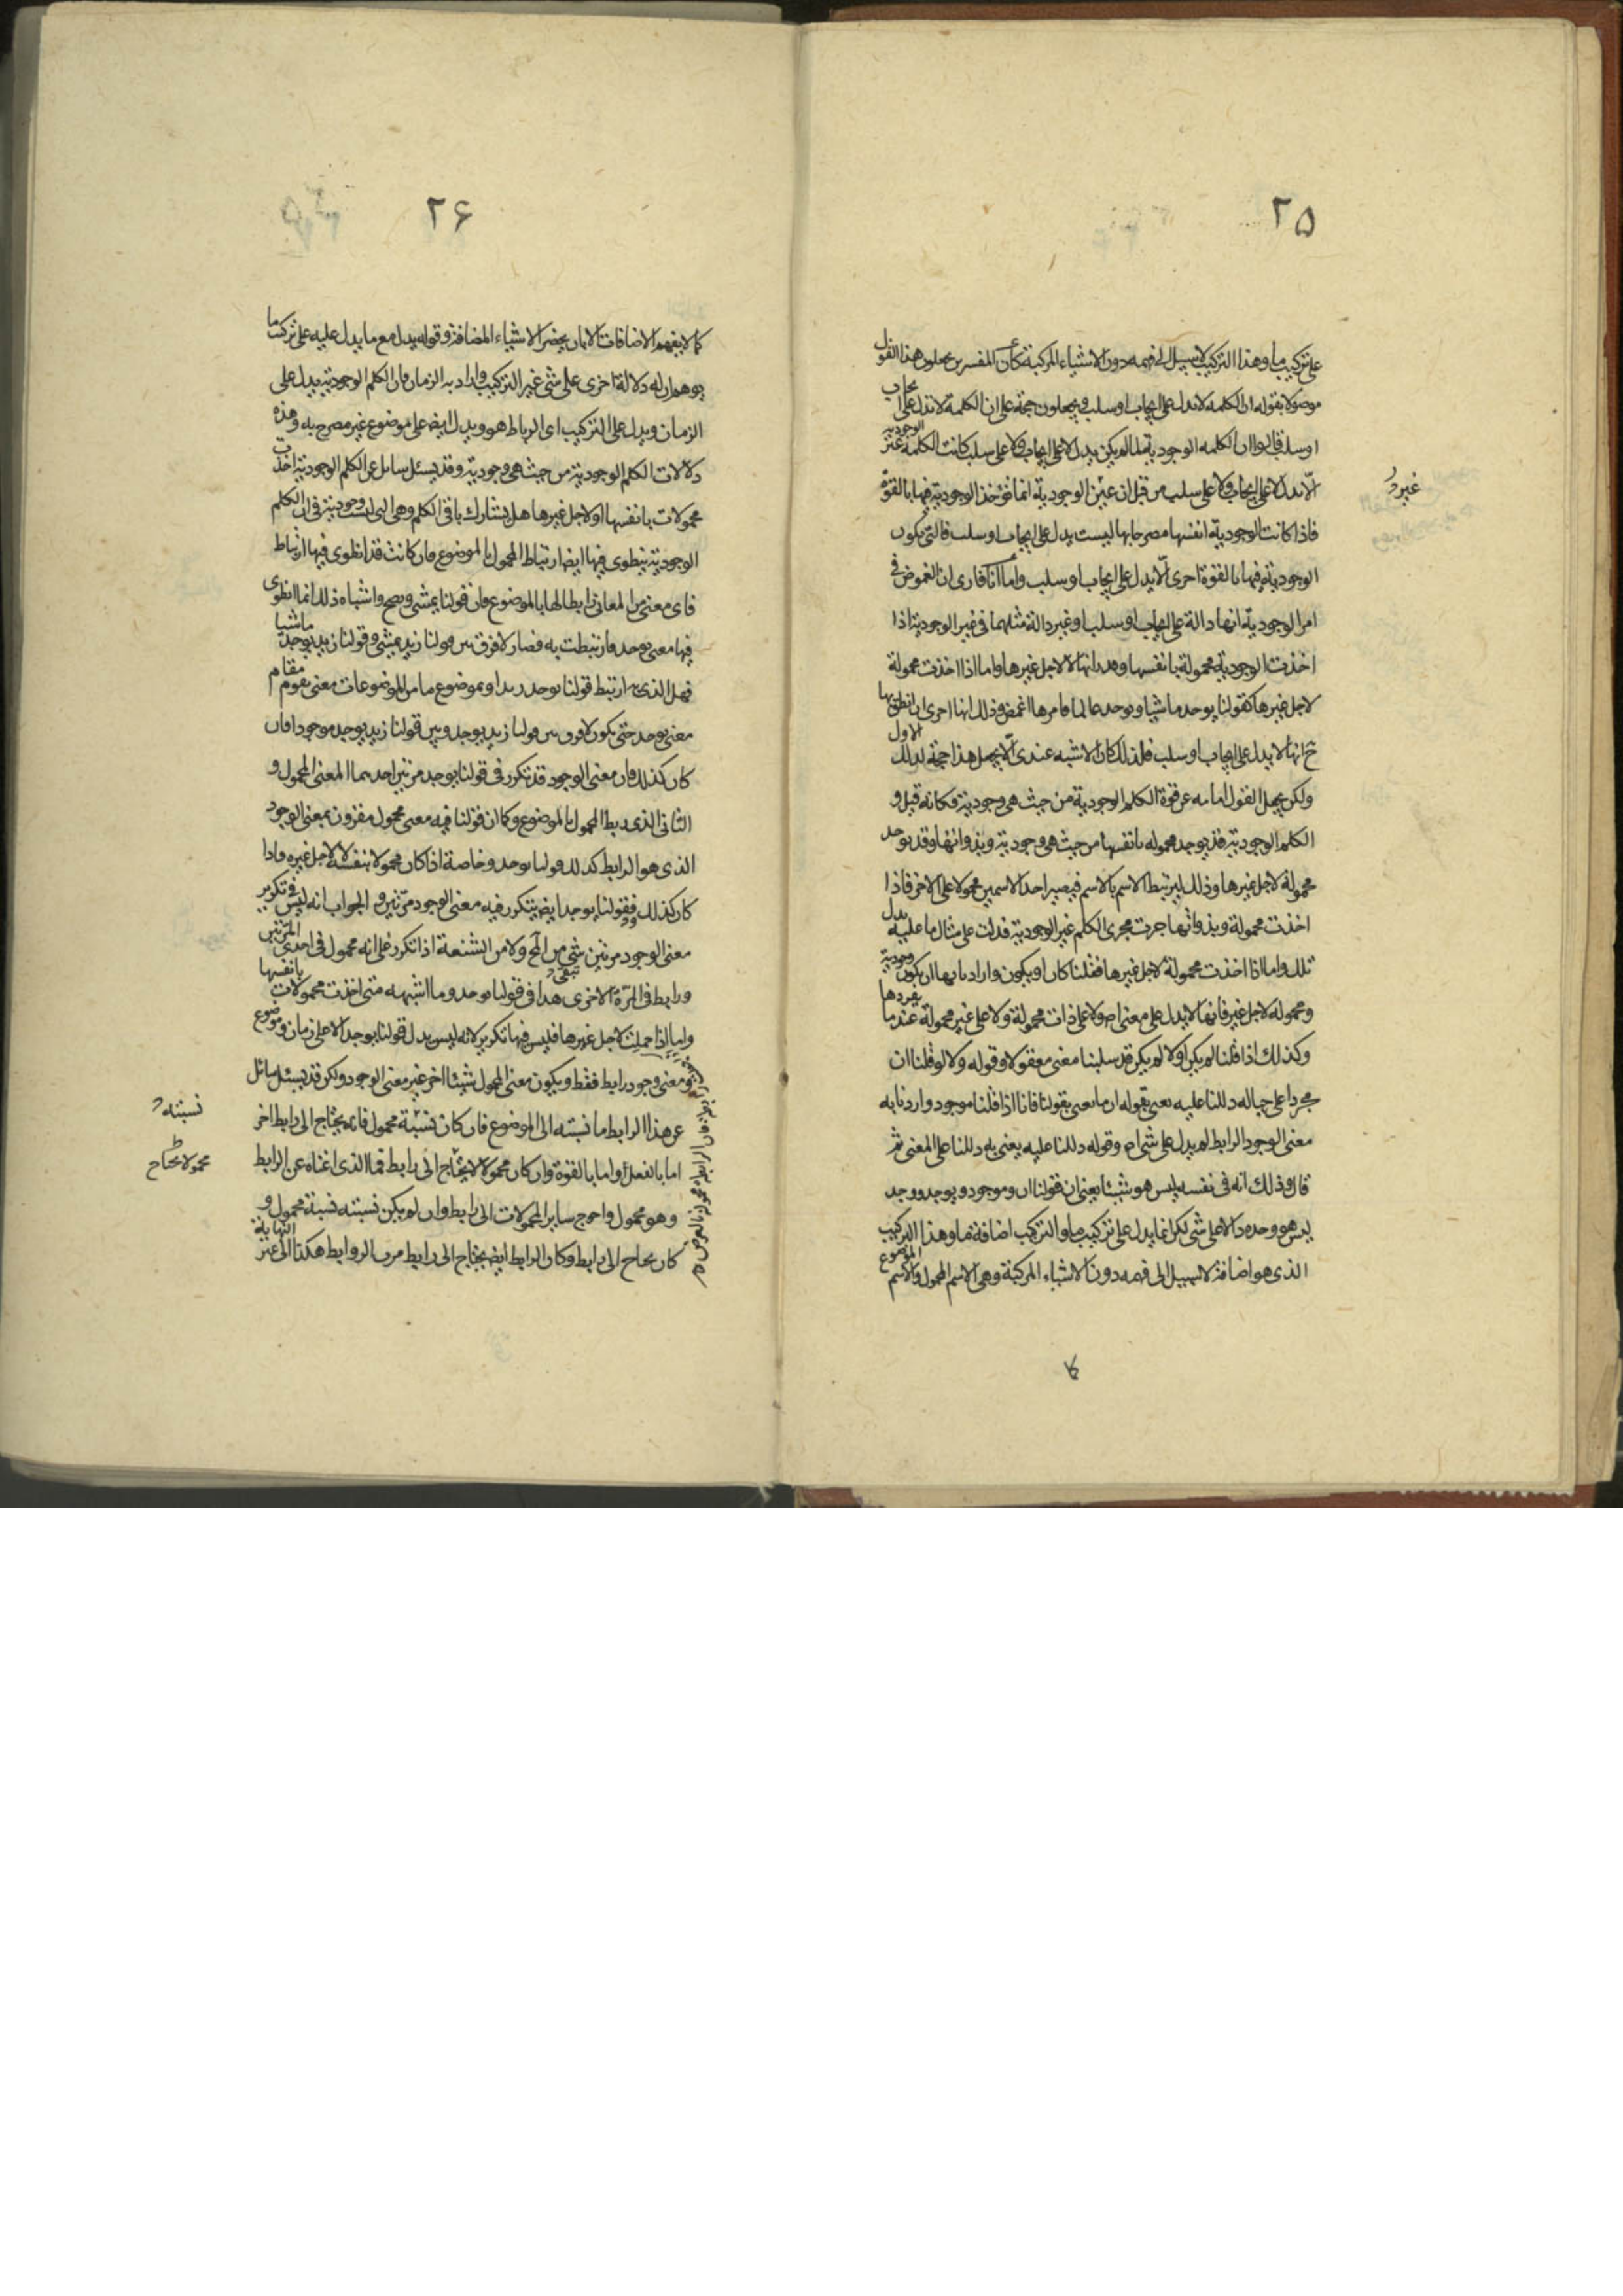 ۲۵
على تركيب ما وهذا التركيب لا سبيل الى فهمه دون الاشياء المركبة كأن المفسرين يجعلون هذا القول
موصولا بقوله ان الكلمه لا تدل على ايجاب او سلب ويجعلون حجة على ان الكلمة لا تدل على ايجاب
او سلب قالوا ان الكلمه الوجودية لما لم يكن يدل لا على ايجاب ولا على سلب كانت الكلمة غير الوجوديه
الّا تدل لا على ايجاب ولا على سلب من قبل ان غير الوجودية انما توخذ الوجودية فيها بالقوة
فاذا كانت الوجودية انفسها مصرحا بها ليست يدل على ايجاب او سلب فالتى يكون
الوجودية فيها بالقوة احرى الّا يدل على ايجاب او سلب واما انا فارى ان الغموض فى
امر الوجودية انها دالة على ايجاب او سلب او غير دالة مثلهما فى غير الوجودية اذا
اخذت الوجودية محمولة بانفسها وحدانها لا لاجل غيرها واما اذا اخذت محمولة
لاجل غيرها كقولنا يوجد ماشيا ويوجد عالما فامرها اغمض وذلك انها احرى ان يظن بها
ح انها لا يدل على ايجاب او سلب فلذلك كان الاشبه عندى الّا يجعل هذا حجة لذلك الاول
ولكن يجعل القول امامه عن قوة الكلم الوجودية من حيث هى وجودية فكانه قيل و
الكلم الوجودية قد يوجد محموله بانفسها من حيث هى وجودية وبذواتها وقد يوجد
محمولة لاجل غيرها وذلك ليرتبط الاسم بالاسم فيصير احد الاسمين محمولا على الاخر فاذا
اخذت محمولة وبذواتها جرت مجرى الكلم غير الوجودية فدلت على مثال ما عليه يدل
تلك واما اذا اخذت محمولة لاجل غيرها فقلنا كان او يكون واراد بانها ان يكون وجودية
ومحموله لاجل غير فانها لا يدل على معنى اص ولا على ذات محمولة ولا على غير محمولة عند ما يفردها
وكذلك اذا قلنا لم يكن اولا لم يكن قد سلبنا معنى معقولا وقوله ولا لو قلنا ان
مجردا على حياله دللنا عليه يعنى بقوله ان ما يعنى بقولنا فانا اذا قلنا موجود واردنا به
معنى الوجود الرابط لم يدل على شى اص وقوله دللنا عليه يعنى به دللنا على المعنى ثم
قال وذلك انه فى نفسه ليس هو شيئا يعنى ان قولنا ان وموجود ويوجد ووجد
ليس هو وحده دالا على شى لكن انما يدل على تركيب ما والتركيب اضافة ما وهذا التركيب
الذى هو اضافة لا سبيل الى فهمه دون الاشياء المركبة وهى الاسم المحمول والاسم الموضوع
كا
غير
۲۶
كما لا يفهم الاضافات الا بان يحضر الاشياء المضافة وقوله يدل مع ما يدل عليه على تركيب ما
يوهم ان له دلالة اخرى على شى غير التركيب واراد به الزمان فان الكلم الوجودية يدل على
الزمان ويدل على التركيب اى الرباط هو ويدل ايض على موضوع غير مصرح به وهذه
دلالات الكلم الوجودية من حيث هى وجودية وقد يسئل سايل عن الكلم الوجودية اخذت
محمولات بانفسها او لاجل غيرها هل يشارك باقى الكلم وهى التى ليست وجودية فى ان الكلم
الوجودية ينطوى فيها ايضا ارتباط المحمول بالموضوع فان كانت قد انطوى فيها ارتباط
فاى معنى من المعانى رابطا لها بالموضوع فان قولنا يمشى ويصح واشباه ذلك انما انطوى
فيها معنى يوجد فارتبطت به فصار لا فرق بين قولنا زيد يمشى وقولنا زيد يوجد ماشيا
فهل الذى به ارتبط قولنا يوجد بزيد او بموضوع ما من الموضوعات معنى يقوم مقام
معنى يوجد حتى يكون لا فرق بين قولنا زيد يوجد وبين قولنا زيد يوجد موجودا فان
كان كذلك فان معنى الوجود قد تكرر فى قولنا يوجد مرتين احدهما المعنى المحمول و
الثانى الذى يربط المحمول بالموضوع وكما ان قولنا فيه معنى محمول مقرون بمعنى الوجود
الذى هو الرابط كذلك قولنا يوجد وخاصة اذا كان محمولا بنفسه لا لاجل غيره واذا
كان كذلك فقولنا يوجد ايض يتكرر فيه معنى الوجود مرّتين و الجواب انه ليس فى تكرير
معنى الوجود مرتين شى من المح ولا من الشنعة اذا تكرر على انه محمول فى احدى المرّتين
ورابط فى المرّة الاخرى هذا فى قولنا يوجد وما اشبهه متى اخذت محمولات بانفسها
واما اذا حملت لاجل غيرها فليس فيها تكرير لانه ليس يدل قولنا يوجد الا على زمان وموضوع
ومعنى وجود رابط فقط ويكون معنى المحمول شيئا اخر غير معنى الوجود ولكن قد يسئل سائل
عن هذا الرابط ما نسبته الى الموضوع فان كان نسبة محمول فانه يحتاج الى رابط اخر
اما بالفعل او اما بالقوة وان كان محمولا لا يحتاج الى رابط فما الذى اغناه عن الرابط
وهو محمول واحوج ساير المحمولات الى رابط وان لم يكن نسبته نسبة محمول و
كان يحتاج الى رابط وكان الرابط ايض يحتاج الى رابط مرت الروابط هكذا الى غير النهاية
نسبته
محمولا يحتاج